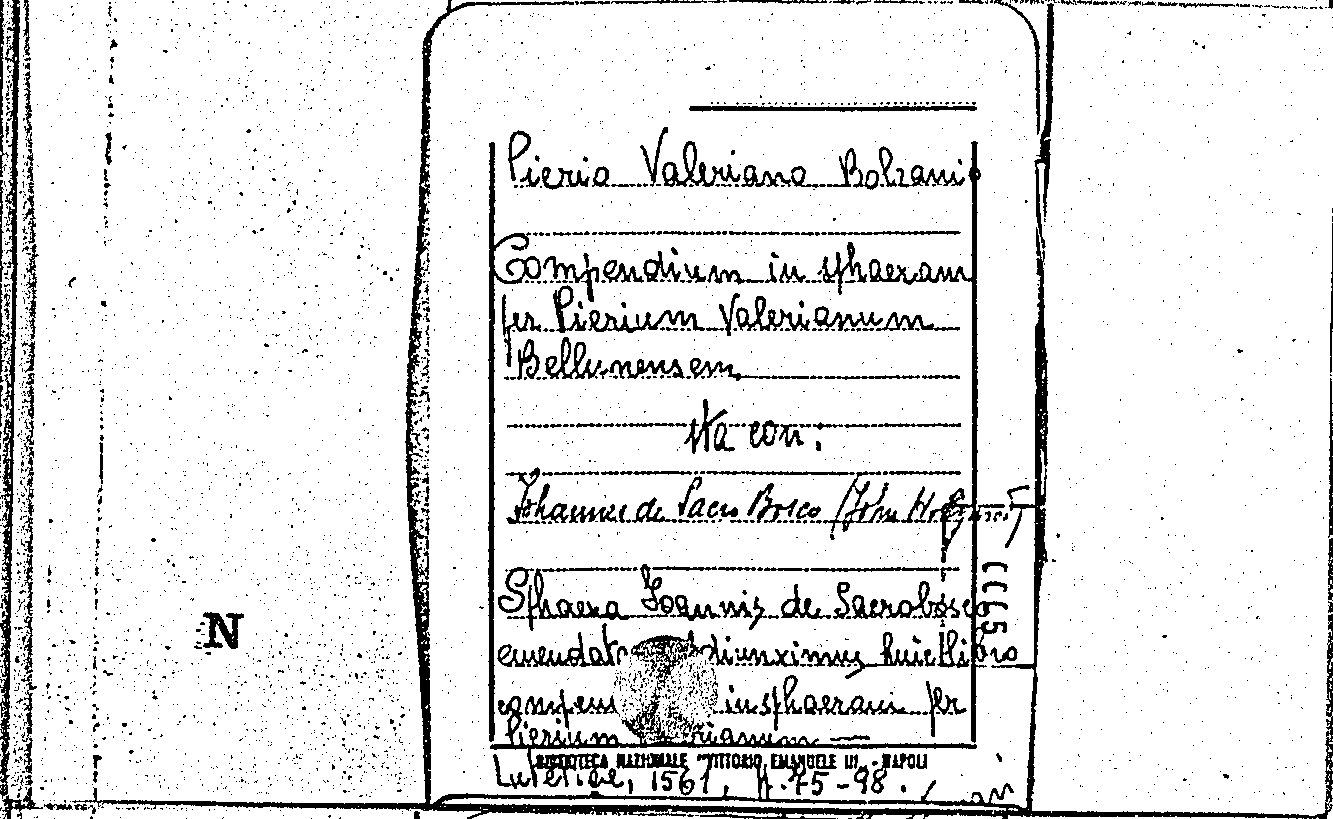 Pierio Valeriano Bolzanio
Compendium in sphaeram
per Pierium Valerianum
Bellunensem
sta con:
Johannes de Sacro Bosco (John
Sphaera Joannis de Sacrobosco
emendata diunximus huic libro
compen in sphaeram per
Pierium rianum —
BIBLIOTECA NAZIONALE "VITTORIO EMANUELE III" - NAPOLI
Lutetiae, 1561, ff. 75-98.
N